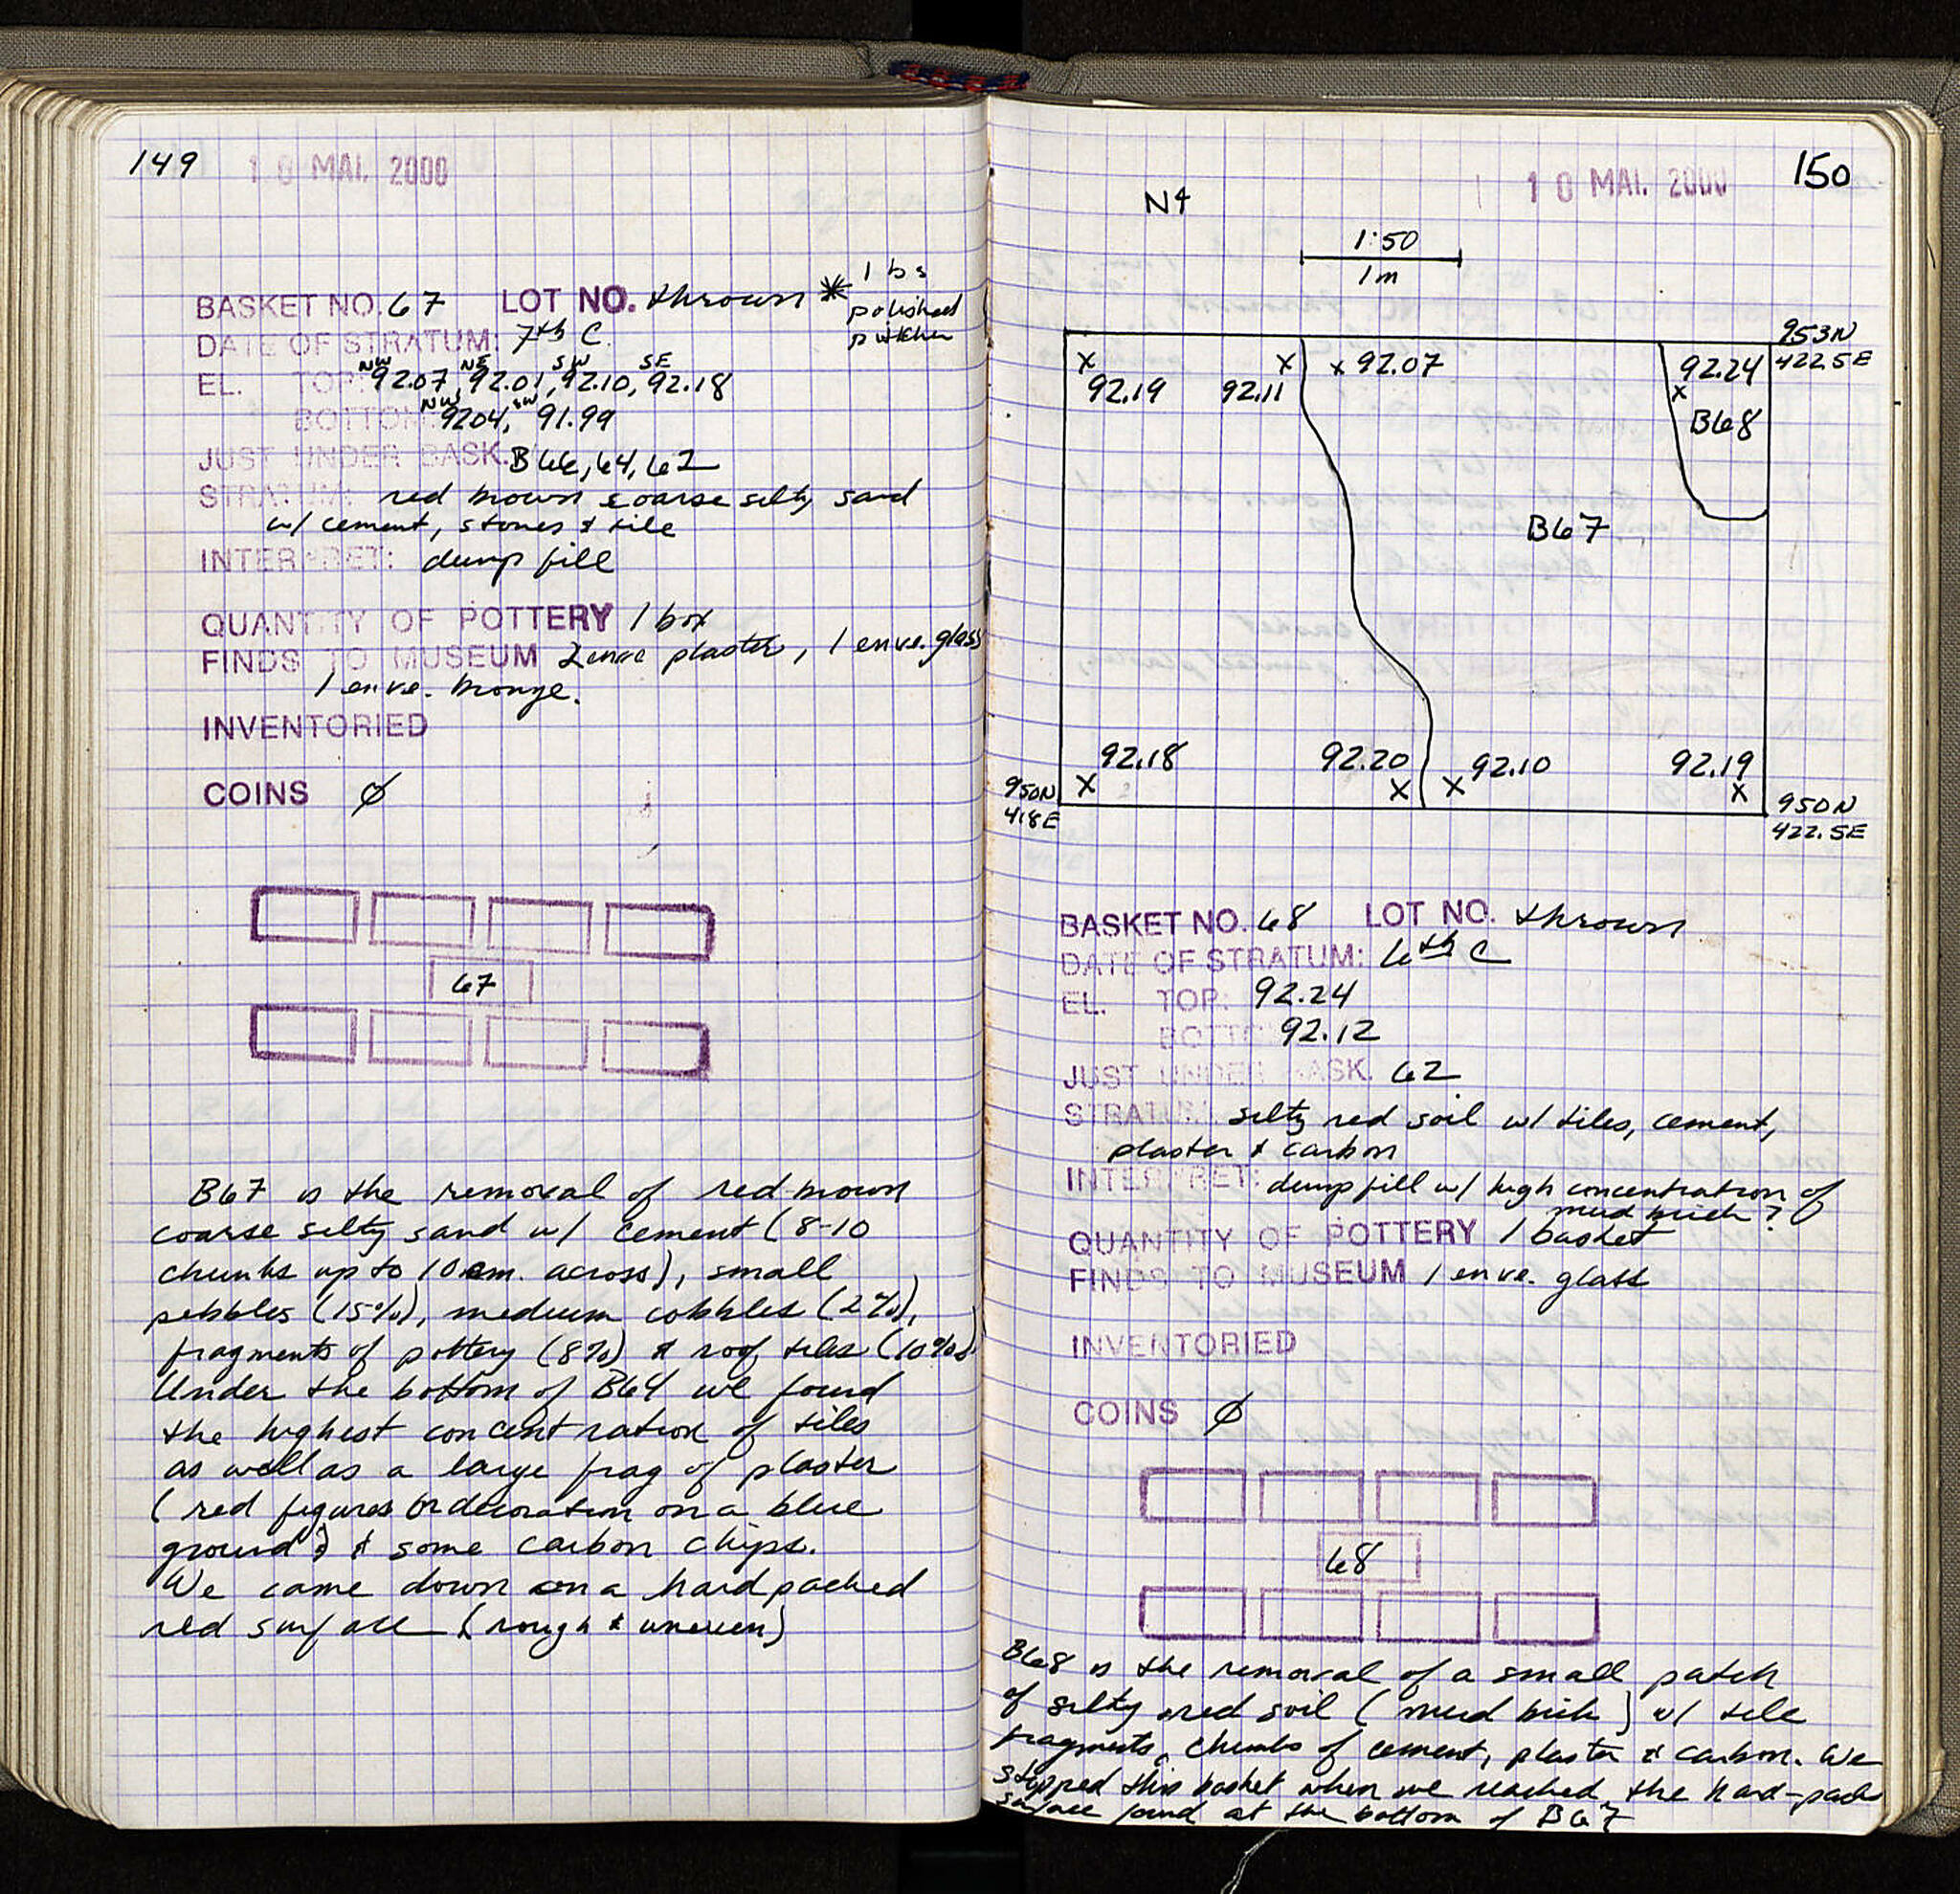 149 10 MAI. 2000
BASKET NO. 67 LOT NO. thrown * 1 bs
polished
pitcher
DATE OF STRATUM: 7th C.
NW NE SW SE
EL. TOP: 92.07, 92.01, 92.10, 92.18
NW SW
BOTTOM 92.04, 91.99
JUST UNDER BASK. B66, 64, 62
STRATUM: red brown coarse silty sand
w/ cement, stones & tile
INTERPRET: dump fill
QUANTITY OF POTTERY 1 box
FINDS TO MUSEUM 2 enve plaster, 1 enve. glass
1 enve. bronze.
INVENTORIED
COINS ∅
67
B67 is the removal of red-brown
coarse silty sand w/ cement (8-10
chunks up to 10cm. across), small
pebbles (15%), medium cobbles (2%),
fragments of pottery (8%) & roof tiles (10%).
Under the bottom of B64 we found
the highest concentration of tiles
as well as a large frag of plaster
(red figures or decoration on a blue
ground) & some carbon chips.
We came down on a hard packed
red surface (rough & uneven)
10 MAI. 2000 150
N↑
1:50
1m
953N
422.5E
x x x 92.07 92.24
92.19 92.11 x
B68
B67
92.18 92.20 92.10 92.19
x x x x
950N
418E
950N
422.5E
BASKET NO. 68 LOT NO. thrown
DATE OF STRATUM: 6th C
EL. TOP: 92.24
BOTTOM 92.12
JUST UNDER BASK. 62
STRATUM: silty red soil w/ tiles, cement,
plaster & carbon
INTERPRET: dump fill w/ high concentration of
mud brick?
QUANTITY OF POTTERY 1 basket
FINDS TO MUSEUM 1 enve. glass
INVENTORIED
COINS ∅
68
B68 is the removal of a small patch
of silty red soil (mud brick) w/ tile
fragments, chunks of cement, plaster & carbon. We
stopped this basket when we reached the hard-pack
surface found at the bottom of B67